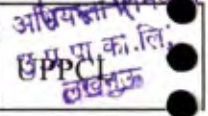 अभियन्ता
उ.प्र.पा.का.लि.
UPPCL
लखनऊ